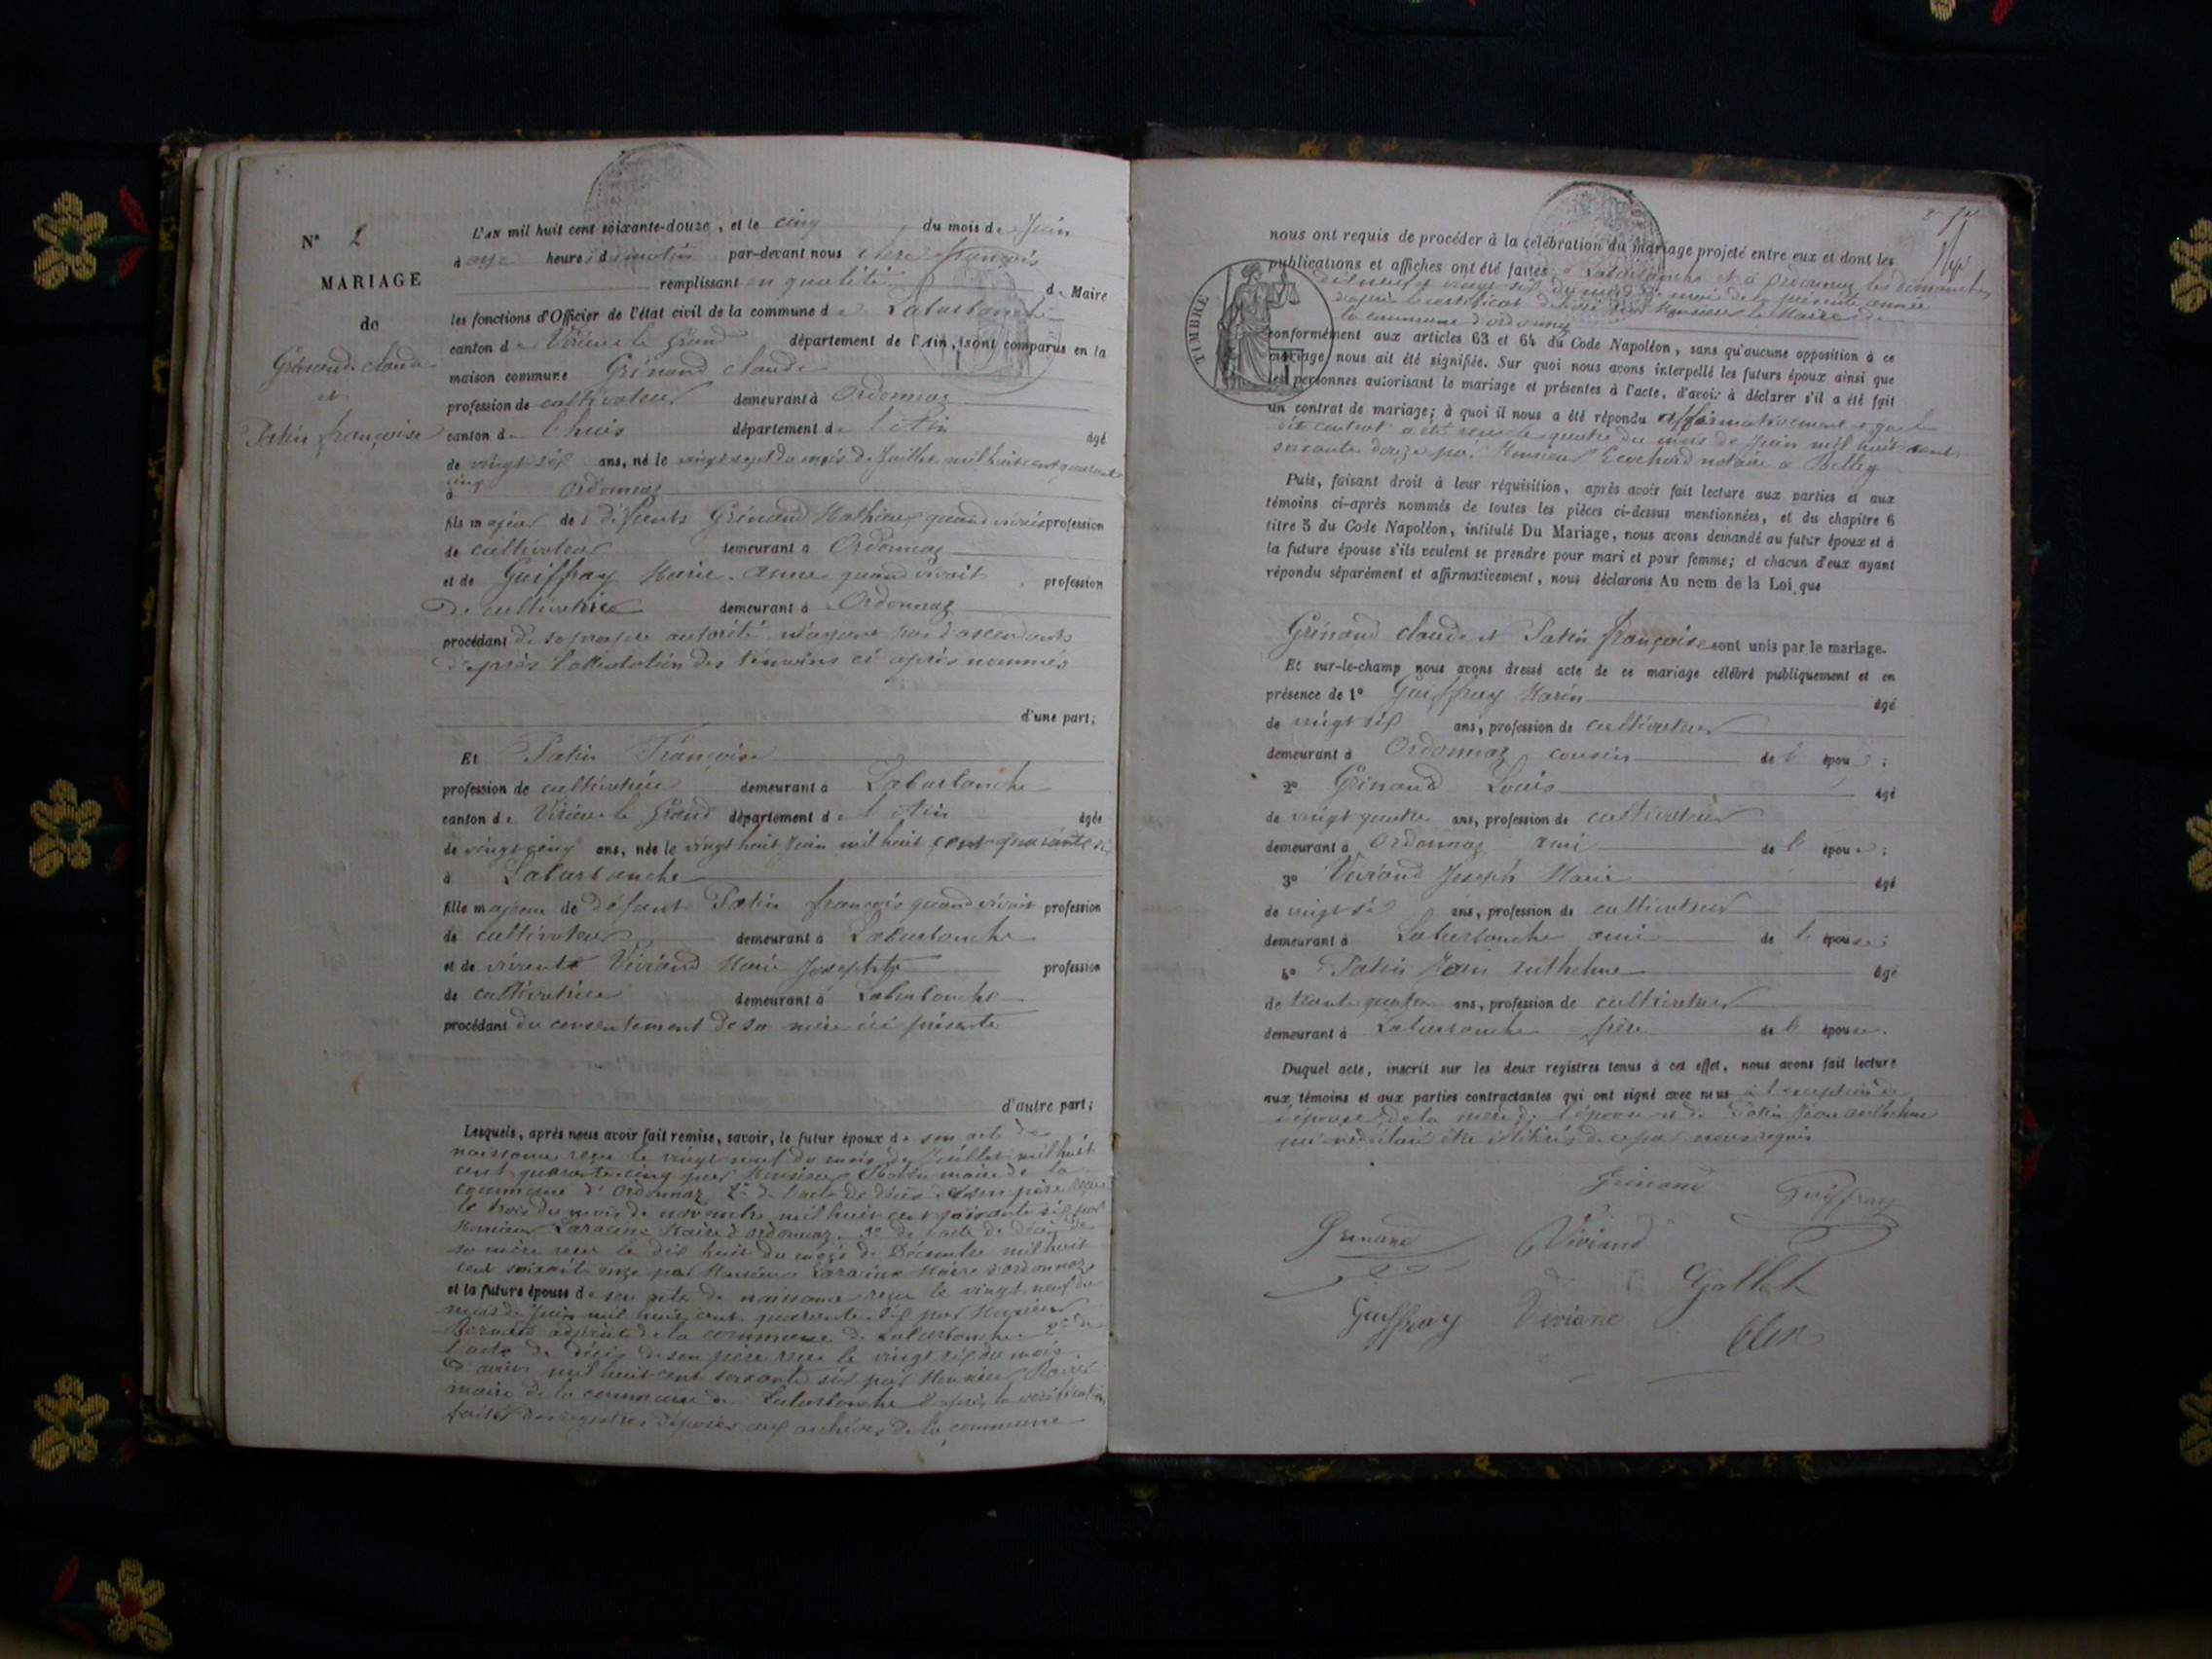 N° 2
MARIAGE
de
Grinand claude
et
Patin françoise
L'an mil huit cent soixante-douze, et le cinq du mois de Juin
à onze heures du matin par-devant nous Clerc françois
remplissant en qualité de Maire
les fonctions d'Officier de l'état civil de la commune de Laburbanche
canton de Virieu le Grand département de l'Ain, sont comparus en la
maison commune Grinand claude
profession de cultivateur demeurant à Ordonnaz
canton de Lhuis département de l'Ain âgé
de vingt six ans, né le vingt sept du mois de Juillet mil huit cent quarante
cinq
à Ordonnaz
fils majeur des défunts Grinand Mathieu quand vivait profession
de cultivateur demeurant à Ordonnaz
et de Guiffray Marie-Anne quand vivait profession
De cultivatrice demeurant à Ordonnaz
procédant de sa propre autorité n'ayant pas d'ascendants
d'après l'attestation des témoins ci après nommés
d'une part;
Et Patin Françoise
profession de cultivatrice demeurant à Laburbanche
canton de Virieu le Grand département de l'Ain âgée
de vingt cinq ans, née le vingt huit Juin mil huit cent quarante six
à Laburbanche
fille majeure de défunt Patin françois quand vivait profession
de cultivateur demeurant à Laburbanche
et de vivante Viviand Marie Josephte profession
de cultivatrice demeurant à Laburbanche
procédant du consentement de sa mère ici présente
d'autre part;
Lesquels, après nous avoir fait remise, savoir, le futur époux de son acte de
naissance reçu le vingt neuf du mois de Juillet mil huit
cent quarante cinq par Monsieur maire de la
commune d'Ordonnaz 2° de l'acte de décès de son père reçu
le trois du mois de novembre mil huit cent soixante six par
Monsieur Laracine Maire d'Ordonnaz. 3° de l'acte de décès de
sa mère reçu le dix huit du mois de Décembre mil huit
cent soixante onze par Monsieur Laracine Maire d'Ordonnaz
et la future épouse de son acte de naissance reçu le vingt neuf du
mois de Juin mil huit cent quarante six par Monsieur
adjoint de la commune de Laburbanche 2° de
l'acte de décès de son père reçu le vingt six du mois
mil huit cent soixante six par Monsieur
maire de la commune de Laburbanche d'après la vérification
faite des registres déposés aux archives de la commune
nous ont requis de procéder à la célébration du mariage projeté entre eux et dont les
publications et affiches ont été faites à Laburbanche et à Ordonnaz les dimanches
dix neuf et vingt six du mois de mai de la présente année
d'après le certificat délivré par Monsieur le Maire de
la commune d'ordonnaz
TIMBRE
conformément aux articles 63 et 64 du Code Napoléon, sans qu'aucune opposition à ce
mariage nous ait été signifiée. Sur quoi nous avons interpellé les futurs époux ainsi que
les personnes autorisant le mariage et présentes à l'acte, d'avoir à déclarer s'il a été fait
un contrat de mariage; à quoi il nous a été répondu affirmativement et que le
dit contrat a été reçu le quatre du mois de Juin mil huit cent
soixante douze par Monsieur notaire à Belley
Puis, faisant droit à leur réquisition, après avoir fait lecture aux parties et aux
témoins ci-après nommés de toutes les pièces ci-dessus mentionnées, et du chapitre 6
titre 5 du Code Napoléon, intitulé Du Mariage, nous avons demandé au futur époux et à
la future épouse s'ils veulent se prendre pour mari et pour femme; et chacun d'eux ayant
répondu séparément et affirmativement, nous déclarons Au nom de la Loi, que
Grinand claude et Patin françoise sont unis par le mariage.
Et sur-le-champ nous avons dressé acte de ce mariage célébré publiquement et en
présence de 1° Guiffray Marin âgé
de vingt six ans, profession de cultivateur
demeurant à Ordonnaz cousin de l'époux;
2° Grinand Louis âgé
de vingt quatre ans, profession de cultivateur
demeurant à Ordonnaz ami de l'époux;
3° Viviand Joseph Marie âgé
de vingt six ans, profession de cultivateur
demeurant à Laburbanche ami de l'épouse;
4° Patin Jean Anthelme âgé
de trente quatre ans, profession de cultivateur
demeurant à Laburbanche frère de l'épouse.
Duquel acte, inscrit sur les deux registres tenus à cet effet, nous avons fait lecture
aux témoins et aux parties contractantes qui ont signé avec nous à l'exception de
l'épouse, de la mère de l'épouse et de Patin Jean anthelme
qui ont déclaré être illitérés de ce par nous requis
Grinand Guiffray
Grinand Viviand
Gallet
Guiffray Viviand
Clerc